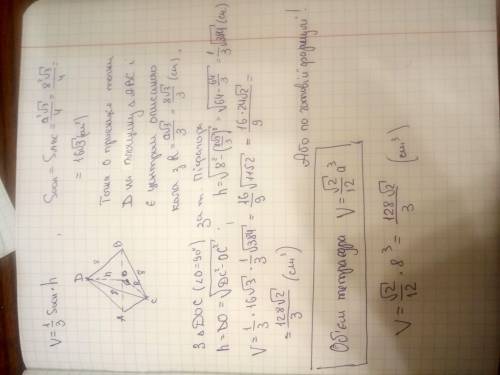 V = 1/3 Sосн · h ; Sосн = S_ABC = a²√3/4 = 8²√3/4 =
= 16√3 (см²)
D
8
h
8
8
A
O
B
C
Точка O проекція точки
D на площину ΔABC і
є центром описаного
кола з R = a√3/3 = 8√3/3 (см).
З ΔDOC (∠O=90°) за т. Піфагора
h = DO = √(DC² - OC²) ; h = √(8² - (8√3/3)²) = √(64 - 64/3) = 1/3 √384 (см)
V = 1/3 · 16√3 · 1/3 √384 = 16/9 √1152 = 16·24√2/9 =
= 128√2/3 (см³)
Або по готовій формулі!
Об'єм тетраедра V = √2/12 a³
V = √2/12 · 8³ = 128√2/3 (см³)